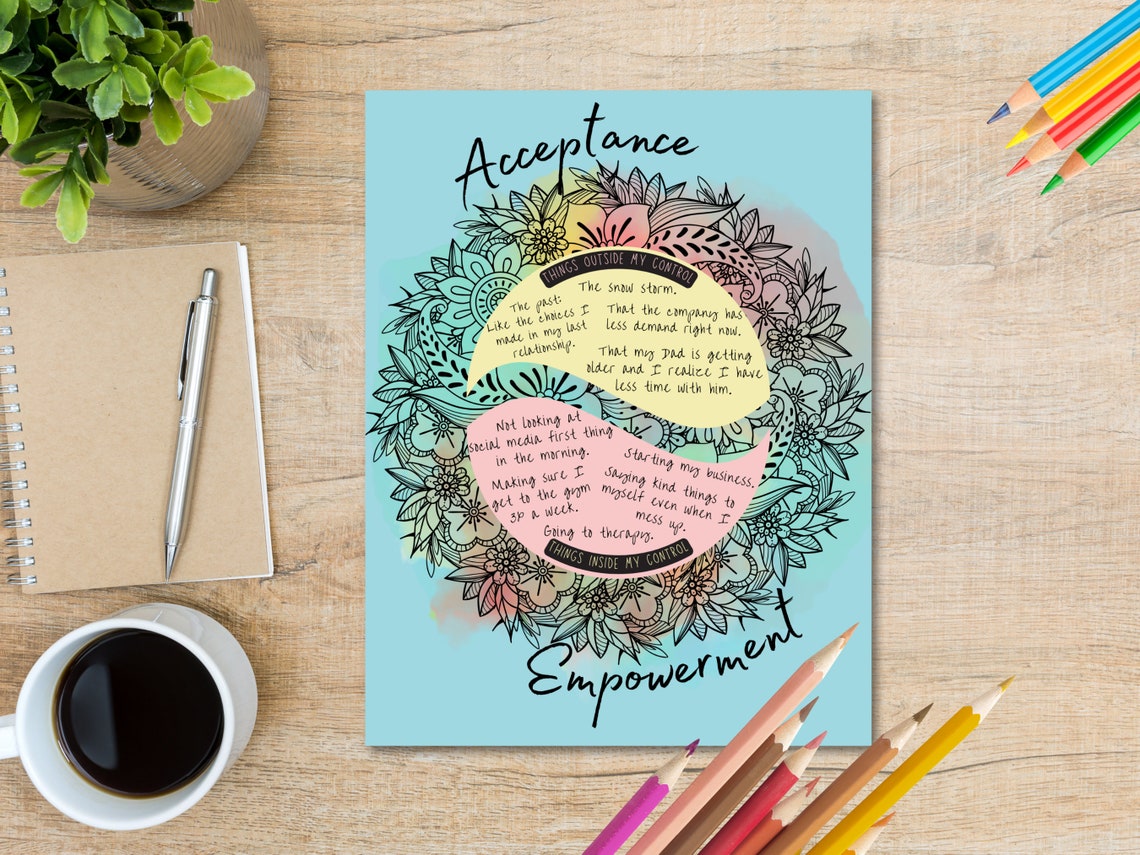 Acceptance
THINGS OUTSIDE MY CONTROL
The snow storm.
The past:
Like the choices I
made in my last
relationship.
That the company has
less demand right now.
That my Dad is getting
older and I realize I have
less time with him.
Not looking at
social media first thing
in the morning.
Starting my business.
Making sure I
get to the gym
3x a week.
Saying kind things to
myself even when I
mess up.
Going to therapy.
THINGS INSIDE MY CONTROL
Empowerment